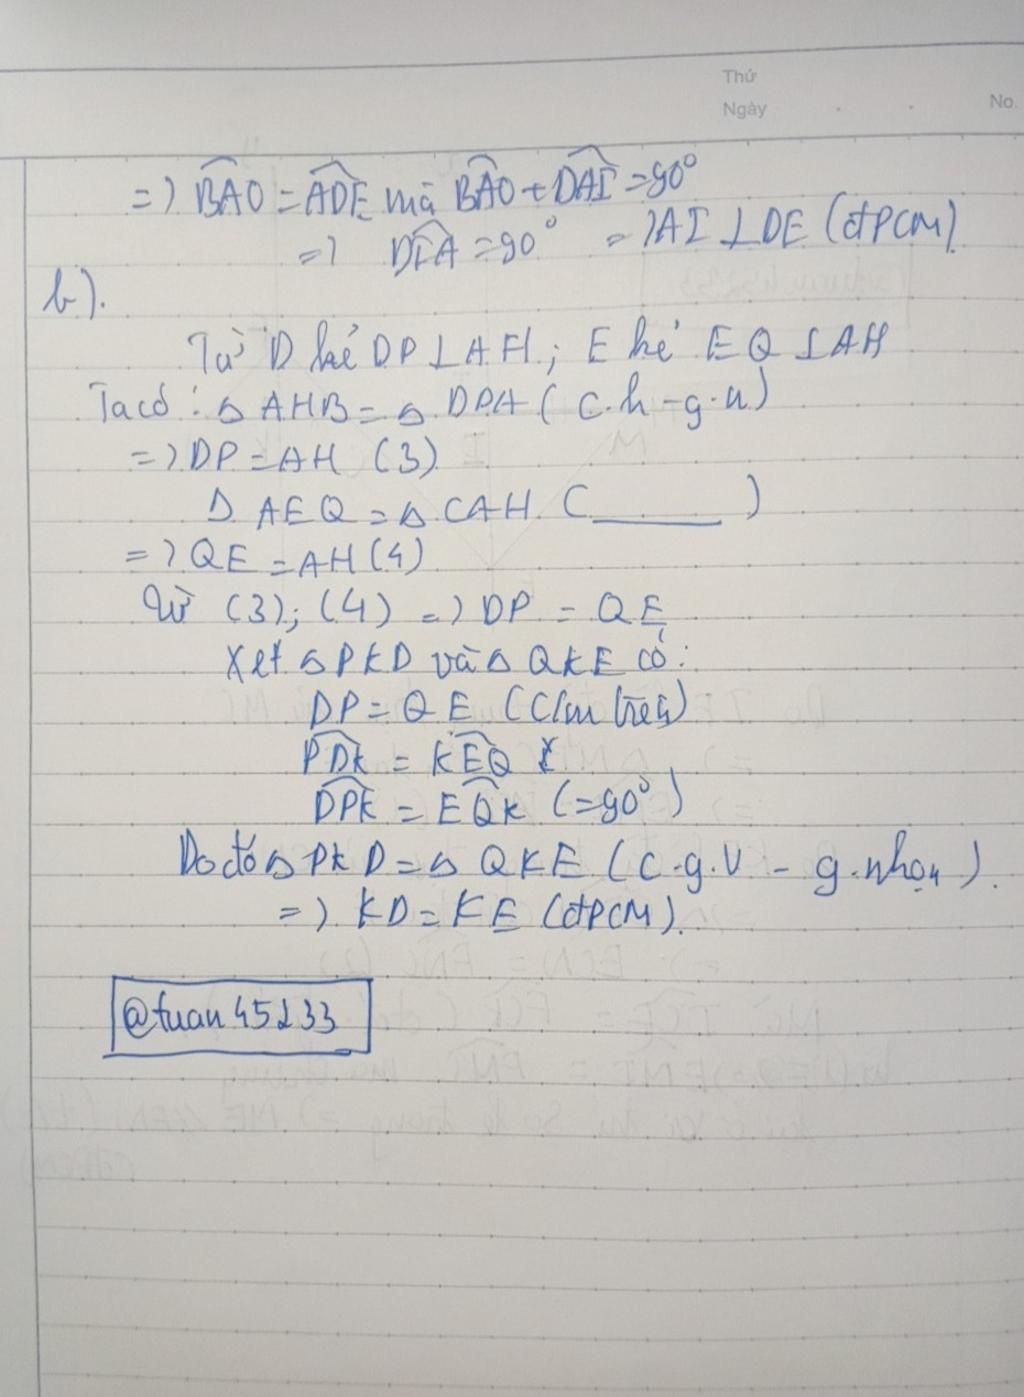 Thứ
Ngày
No.
=> BAO = ADE mà BAO + DAI = 90°
=> DIA = 90° => AI ⊥ DE (đPCM)
b).
Từ D kẻ DP ⊥ AH; E kẻ EQ ⊥ AH
Ta có: Δ AHB = Δ DPA (c.h - g.n)
=> DP = AH (3)
Δ AEQ = Δ CAH (______)
=> QE = AH (4)
Từ (3); (4) => DP = QE
Xét Δ PKD và Δ QKE có:
DP = QE (C/m trên)
PDK = KEQ
DPK = EQK (= 90°)
Do đó Δ PKD = Δ QKE (C.g.V - g.nhọn).
=> KD = KE (đPCM).
@tuan45233